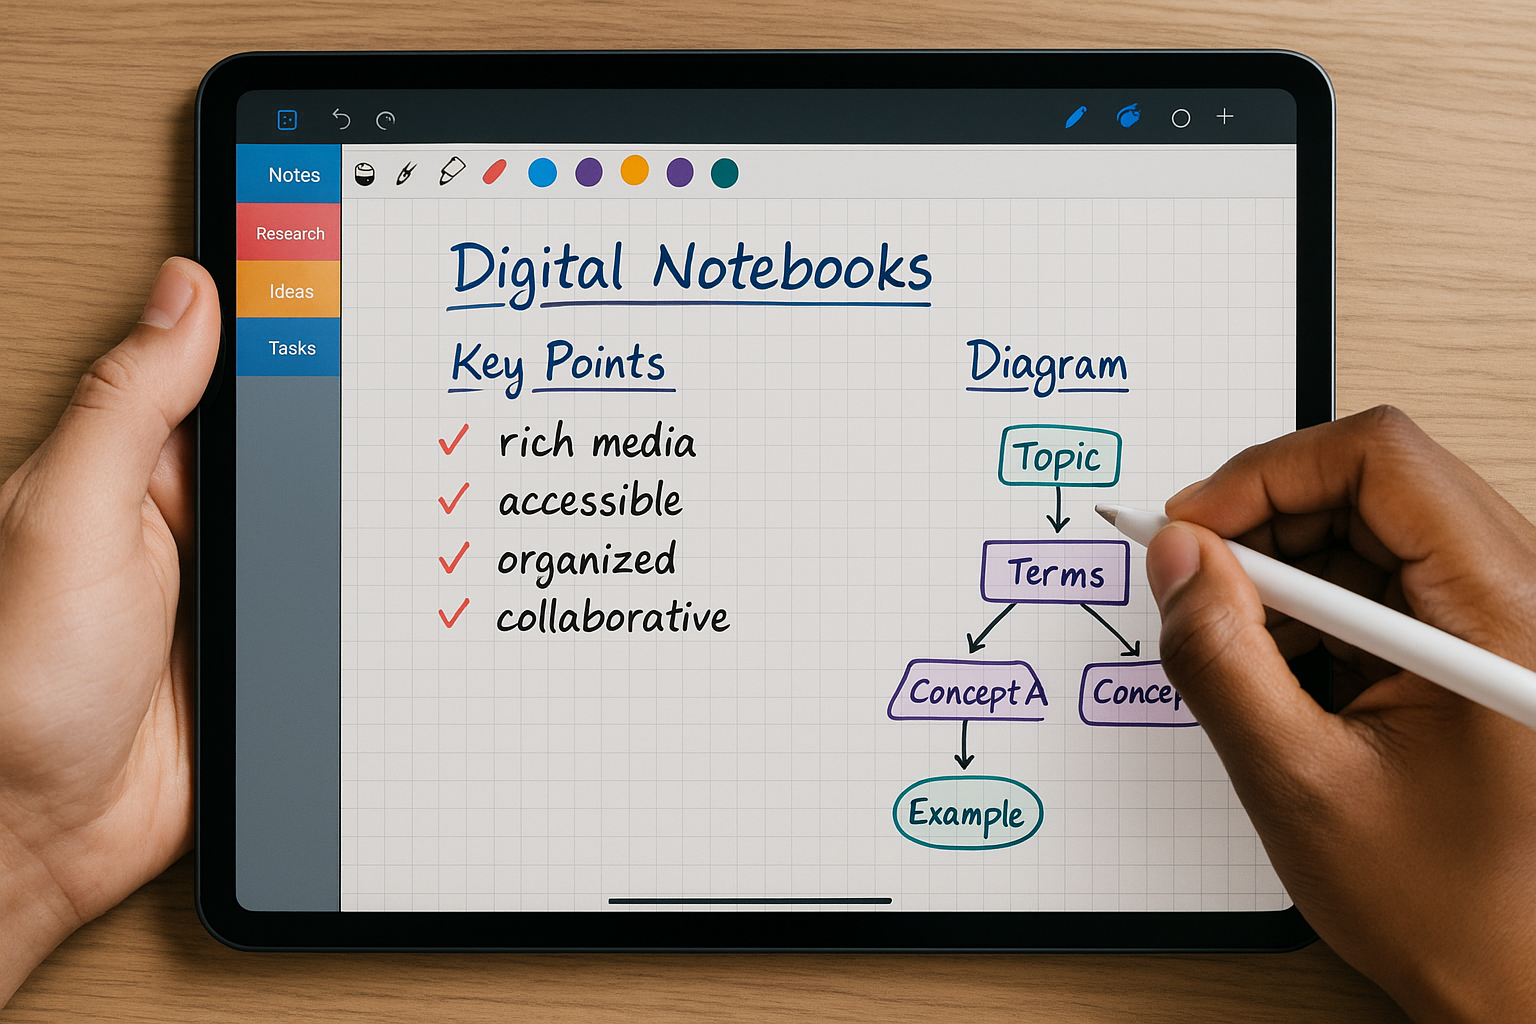 Notes
Research
Ideas
Tasks
Digital Notebooks
Key Points
✓ rich media
✓ accessible
✓ organized
✓ collaborative
Diagram
Topic
Terms
Concept A
Example